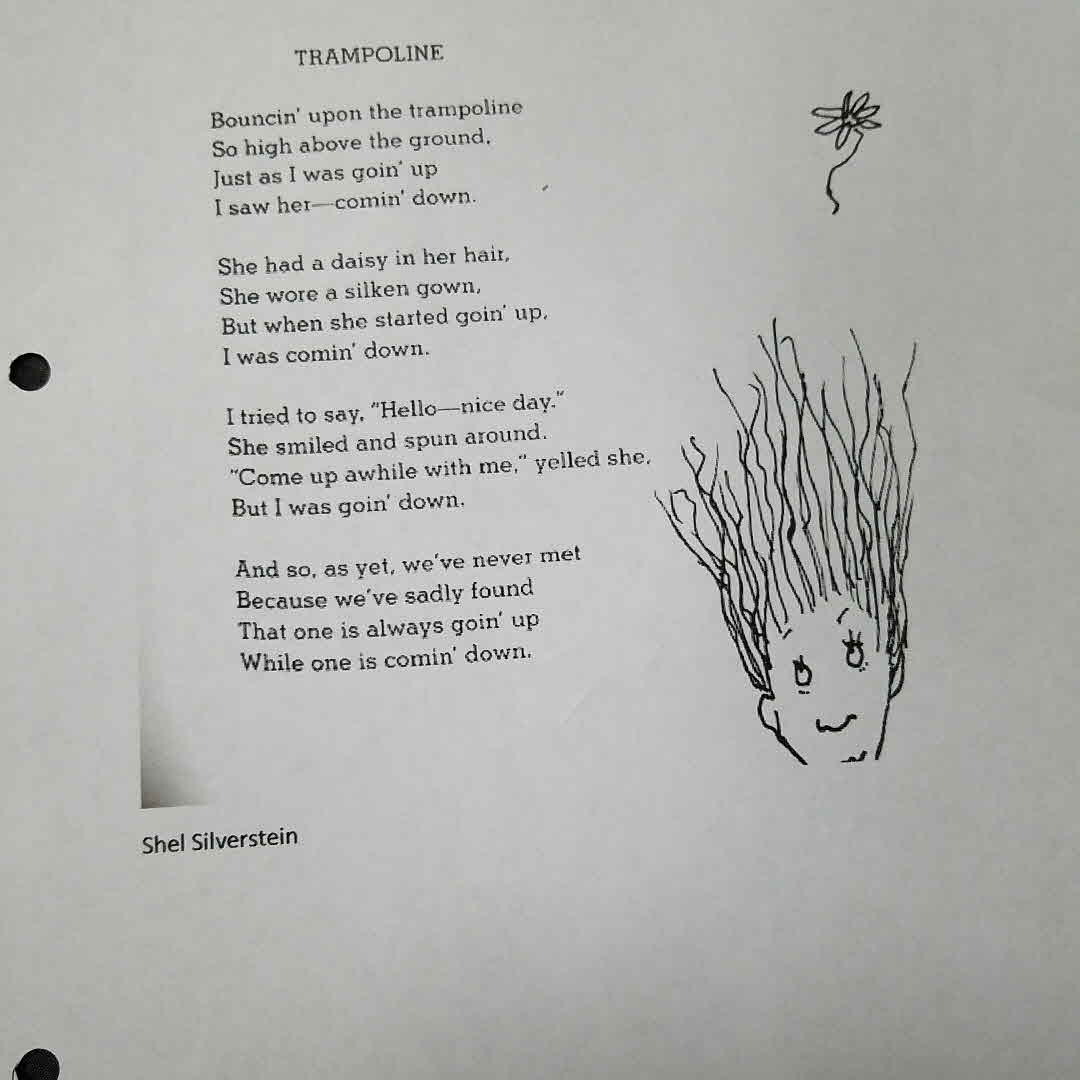 TRAMPOLINE
Bouncin' upon the trampoline
So high above the ground,
Just as I was goin' up
I saw her—comin' down.
She had a daisy in her hair,
She wore a silken gown,
But when she started goin' up,
I was comin' down.
I tried to say, "Hello—nice day."
She smiled and spun around.
"Come up awhile with me," yelled she,
But I was goin' down.
And so, as yet, we've never met
Because we've sadly found
That one is always goin' up
While one is comin' down.
Shel Silverstein